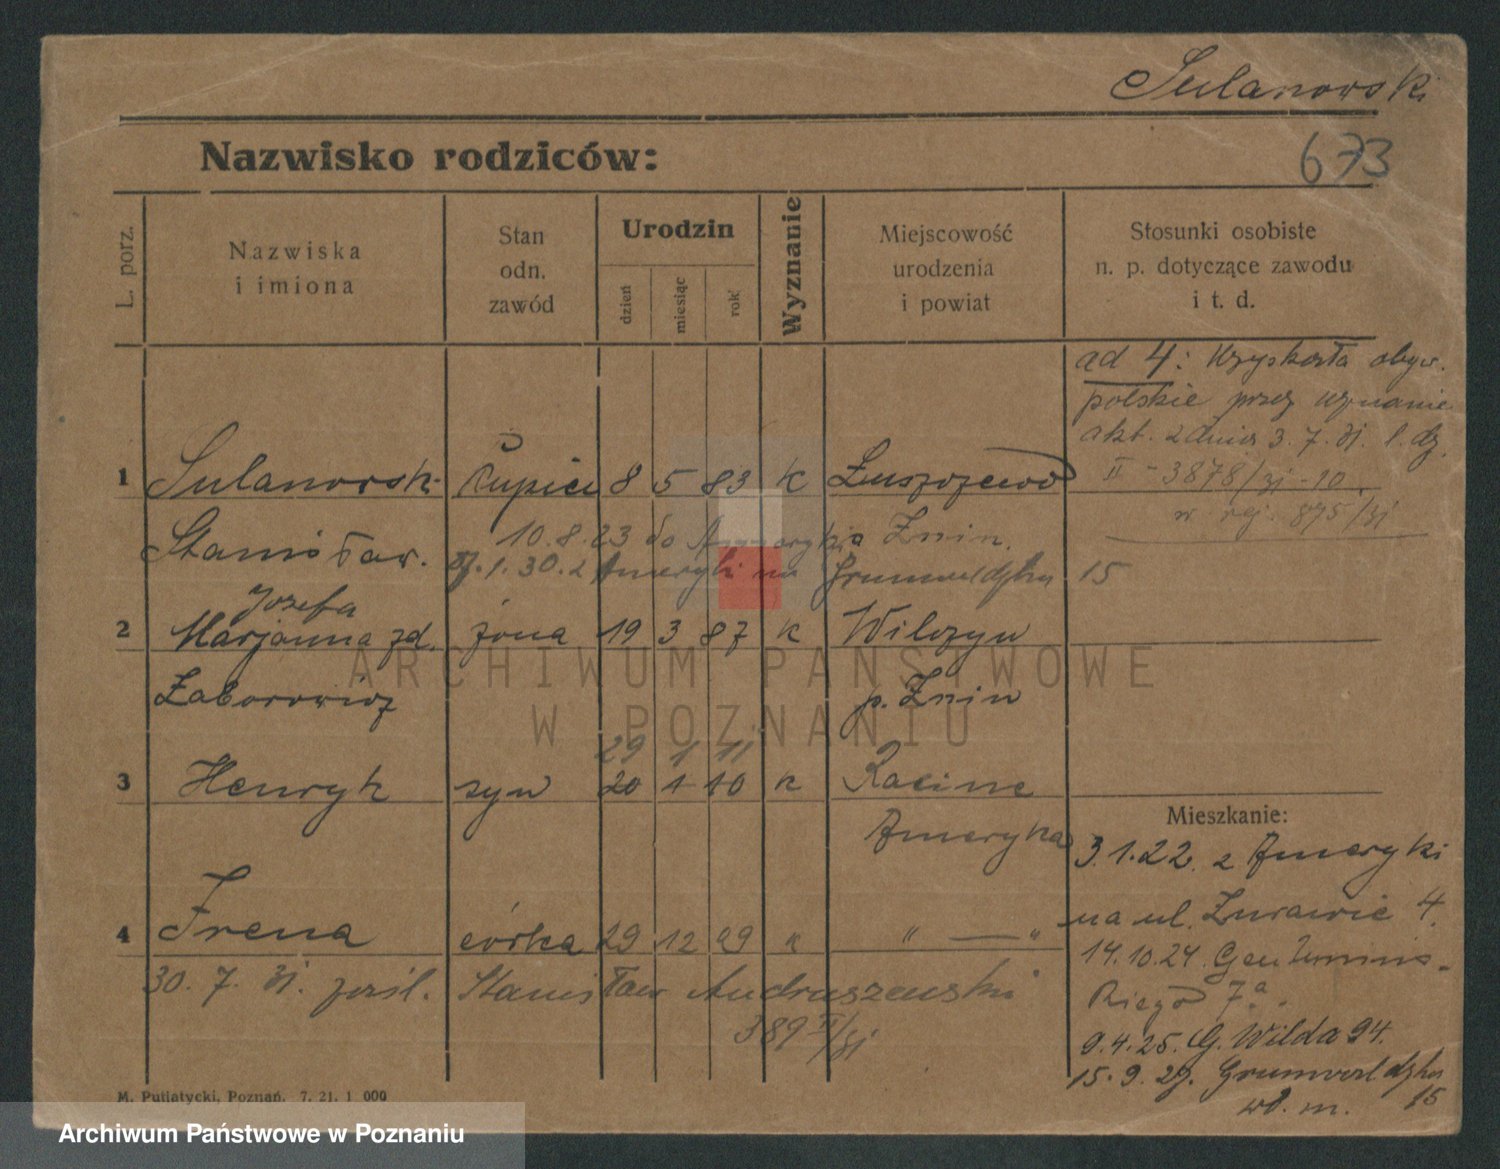 Sulanowski
673
Nazwisko rodziców:
L. porz.
Nazwiska
i imiona
Stan
odn.
zawód
Urodzin
dzień
miesiąc
rok
Wyznanie
Miejscowość
urodzenia
i powiat
Stosunki osobiste
n. p. dotyczące zawodu
i t. d.
ad 4: Uzyskała obyw.
polskie przez uznanie
akt. z dnia 3.7.31. l. dz.
II - 3878/31 - 10
w rej. 895/31
1 Sulanowski Kupiec 8 5 83 k
Stanisław. 10.8.23 do Ameryki Żnin.
1.30. z Ameryki na Grunwaldzka 15
Józefa
2 Marjanna zd. żona 19 3 87 k Wilczyn
Zaborowicz p. Żnin
29 1 11
3 Henryk syn 20 1 10 k Racine
Ameryka
Mieszkanie:
3.1.22. z Ameryki
na ul. Żurawie 4.
4 Irena córka 29 12 09 " " — "
14.10.24. Gen.
7a.
30.7.31. Stanisław Andruszewski
389 II/31
9.4.25. G. Wilda 94.
15.9.27. Grunwaldzka
15
wł. m.
M. Putiatycki, Poznań. 7. 21. 1 000
ARCHIWUM PAŃSTWOWE
W POZNANIU
Archiwum Państwowe w Poznaniu